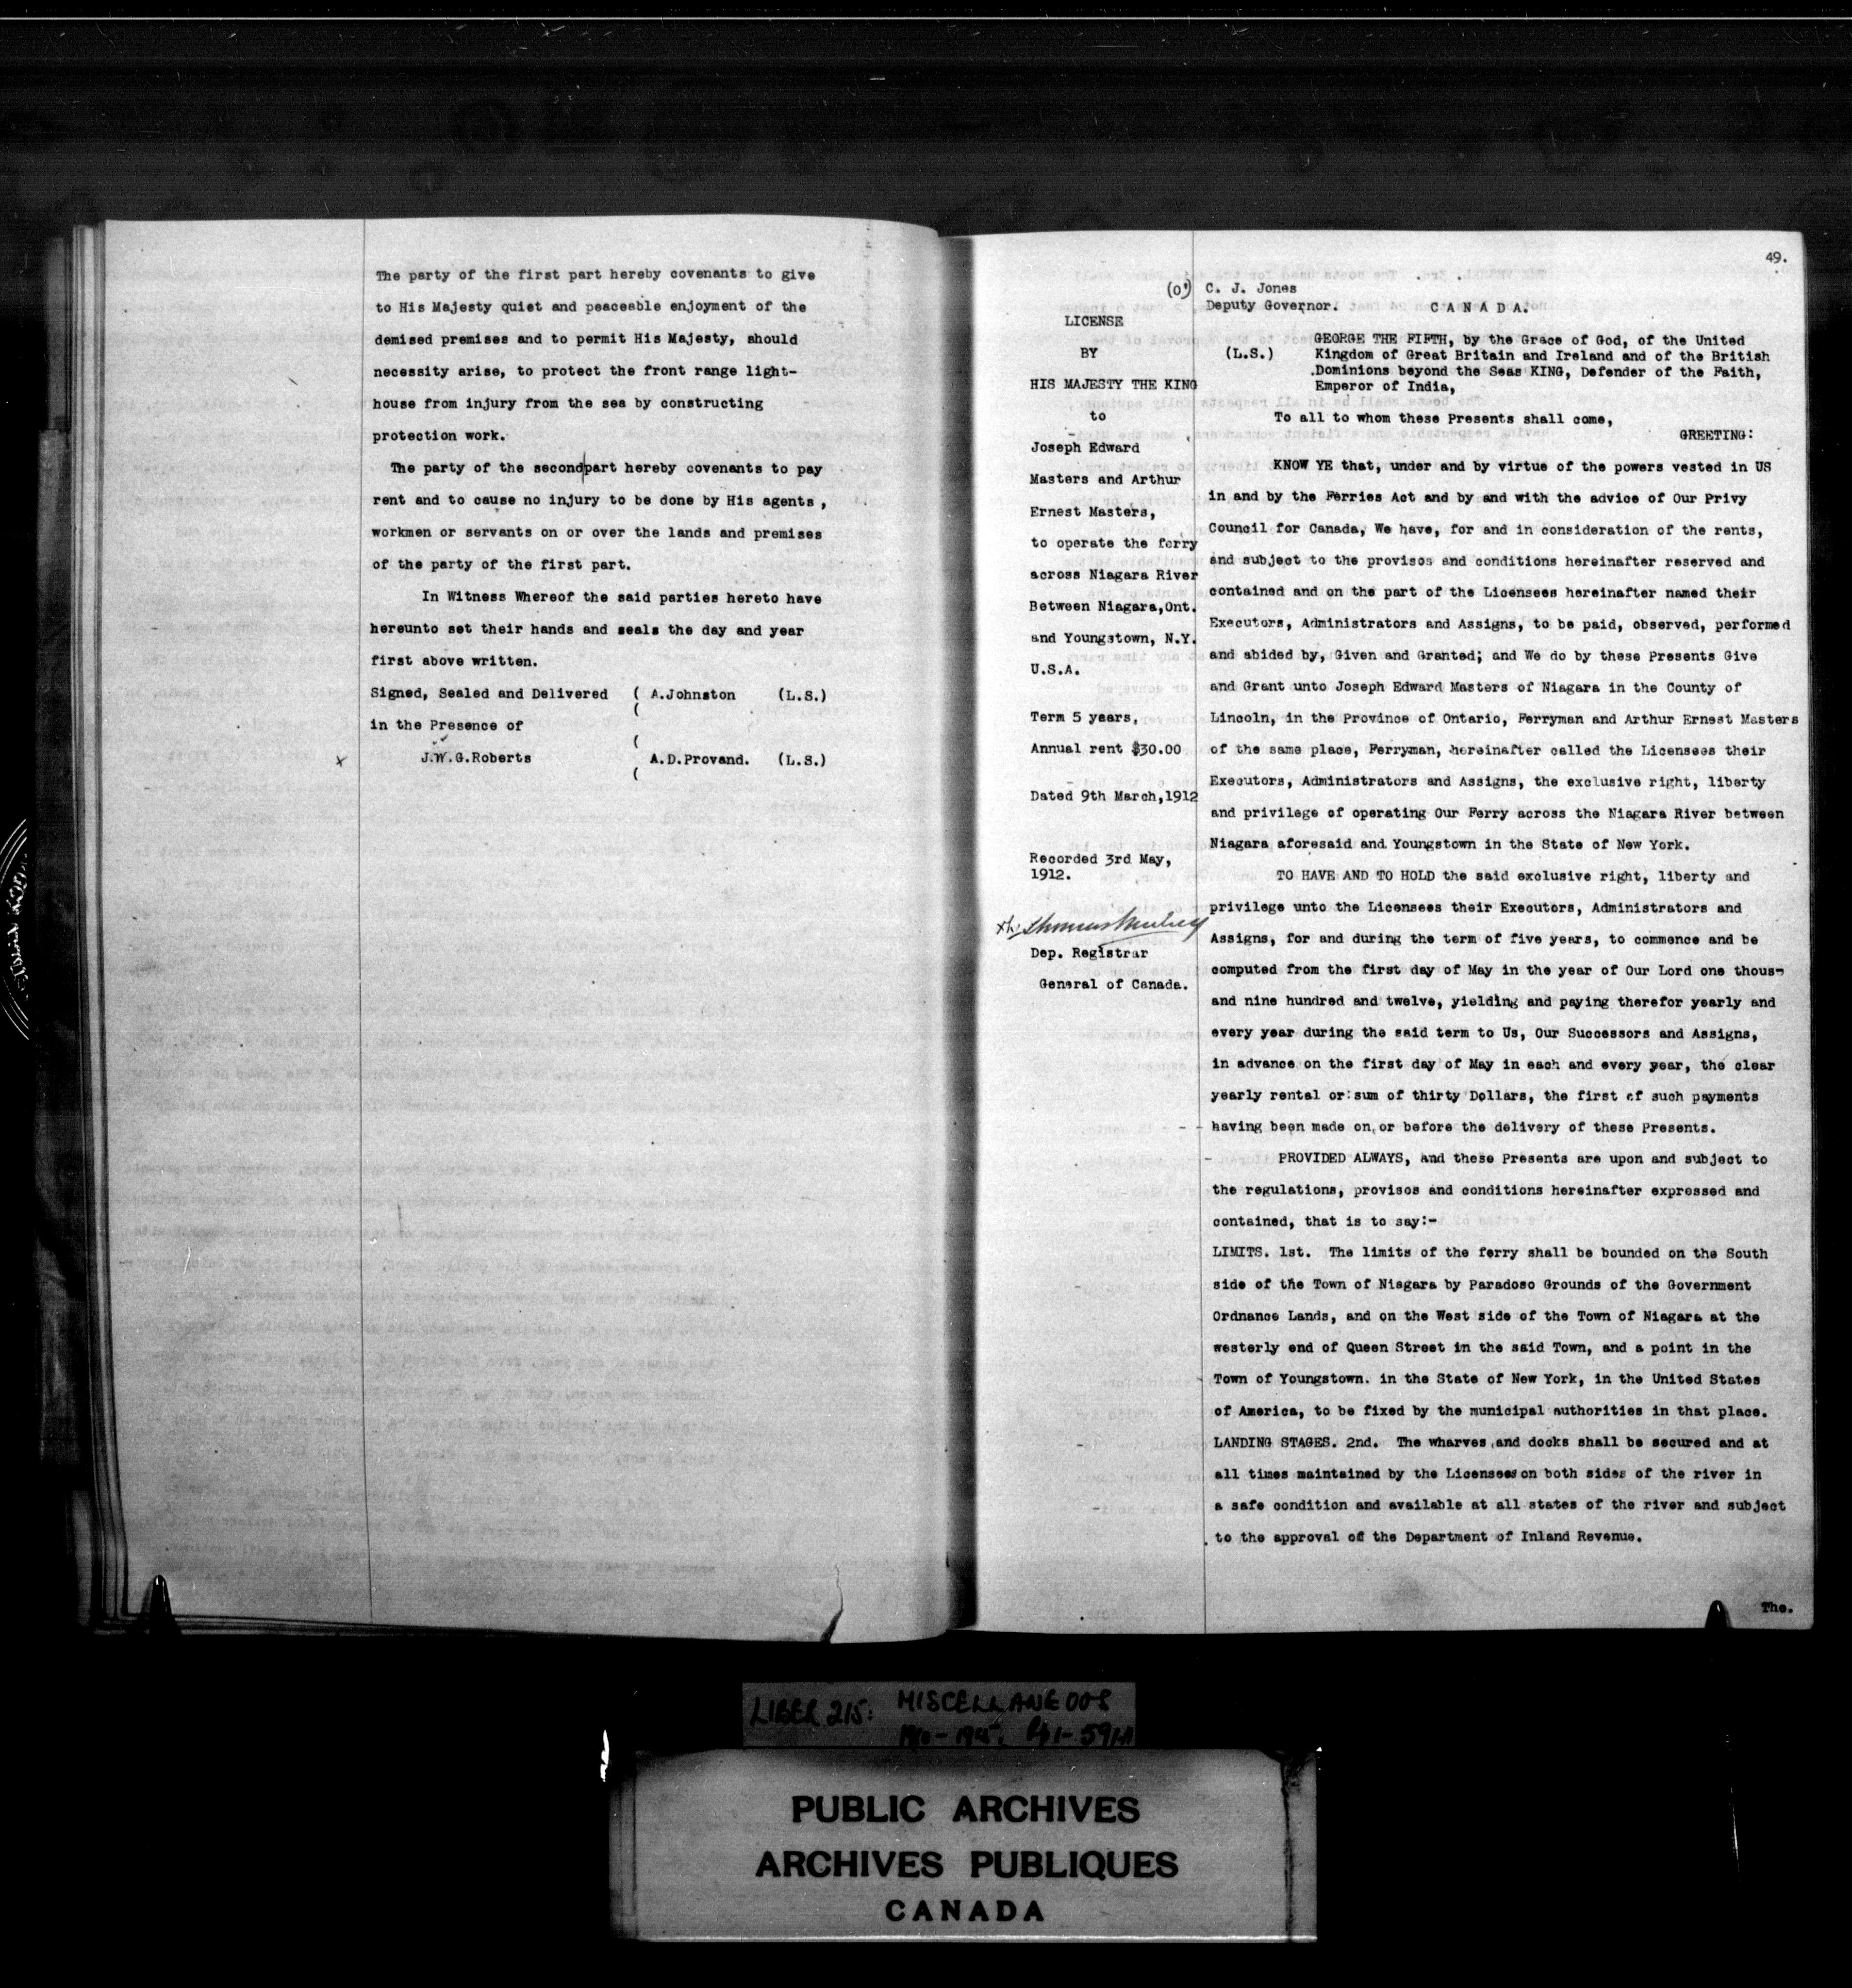 The party of the first part hereby covenants to give
to His Majesty quiet and peaceable enjoyment of the
demised premises and to permit His Majesty, should
necessity arise, to protect the front range light-
house from injury from the sea by constructing
protection work.
The party of the second part hereby covenants to pay
rent and to cause no injury to be done by His agents ,
workmen or servants on or over the lands and premises
of the party of the first part.
In Witness Whereof the said parties hereto have
hereunto set their hands and seals the day and year
first above written.
Signed, Sealed and Delivered ( A.Johnston (L.S.)
(
in the Presence of
(
x J.W.G.Roberts A.D.Provand. (L.S.)
(
49.
(O')
LICENSE
BY
HIS MAJESTY THE KING
to
Joseph Edward
Masters and Arthur
Ernest Masters,
to operate the ferry
across Niagara River
Between Niagara,Ont.
and Youngstown, N.Y.
U.S.A.
Term 5 years,
Annual rent $30.00
Dated 9th March,1912
Recorded 3rd May,
1912.
Dep. Registrar
General of Canada.
C. J. Jones
Deputy Governor. C A N A D A.
(L.S.) GEORGE THE FIFTH, by the Grace of God, of the United
Kingdom of Great Britain and Ireland and of the British
Dominions beyond the Seas KING, Defender of the Faith,
Emperor of India,
To all to whom these Presents shall come,
GREETING:
KNOW YE that, under and by virtue of the powers vested in US
in and by the Ferries Act and by and with the advice of Our Privy
Council for Canada, We have, for and in consideration of the rents,
and subject to the provisos and conditions hereinafter reserved and
contained and on the part of the Licensees hereinafter named their
Executors, Administrators and Assigns, to be paid, observed, performed
and abided by, Given and Granted; and We do by these Presents Give
and Grant unto Joseph Edward Masters of Niagara in the County of
Lincoln, in the Province of Ontario, Ferryman and Arthur Ernest Masters
of the same place, Ferryman, hereinafter called the Licensees their
Executors, Administrators and Assigns, the exclusive right, liberty
and privilege of operating Our Ferry across the Niagara River between
Niagara aforesaid and Youngstown in the State of New York.
TO HAVE AND TO HOLD the said exclusive right, liberty and
privilege unto the Licensees their Executors, Administrators and
Assigns, for and during the term of five years, to commence and be
computed from the first day of May in the year of Our Lord one thous-
and nine hundred and twelve, yielding and paying therefor yearly and
every year during the said term to Us, Our Successors and Assigns,
in advance on the first day of May in each and every year, the clear
yearly rental or sum of thirty Dollars, the first of such payments
having been made on or before the delivery of these Presents.
PROVIDED ALWAYS, and these Presents are upon and subject to
the regulations, provisos and conditions hereinafter expressed and
contained, that is to say:-
LIMITS. 1st. The limits of the ferry shall be bounded on the South
side of the Town of Niagara by Paradoso Grounds of the Government
Ordnance Lands, and on the West side of the Town of Niagara at the
westerly end of Queen Street in the said Town, and a point in the
Town of Youngstown. in the State of New York, in the United States
of America, to be fixed by the municipal authorities in that place.
LANDING STAGES. 2nd. The wharves and docks shall be secured and at
all times maintained by the Licensees on both sides of the river in
a safe condition and available at all states of the river and subject
to the approval of the Department of Inland Revenue.
The.
LIBER 215: MISCELLANEOUS
PUBLIC ARCHIVES
ARCHIVES PUBLIQUES
CANADA